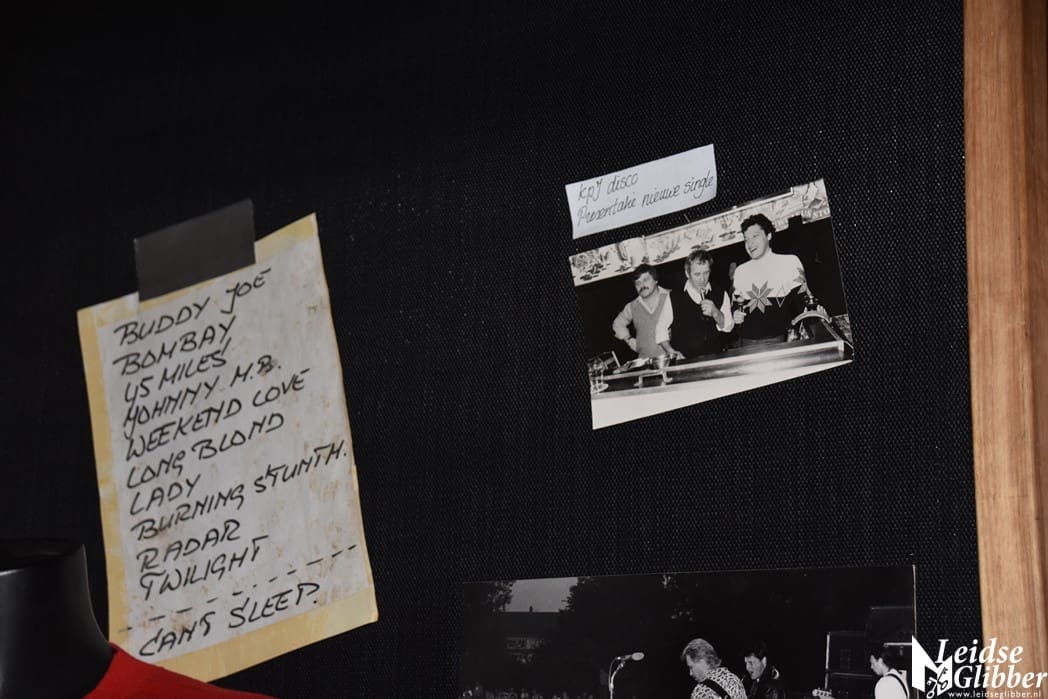 BUDDY JOE
BOMBAY
45 MILES
JOHNNY M.B.
WEEKEND LOVE
LONG BLOND
LADY
BURNING STUNTH.
RADAR
TWILIGHT
CAN'T SLEEP.
kpJ disco
Presentatie nieuwe single
Leidse
Glibber
www.leidseglibber.nl